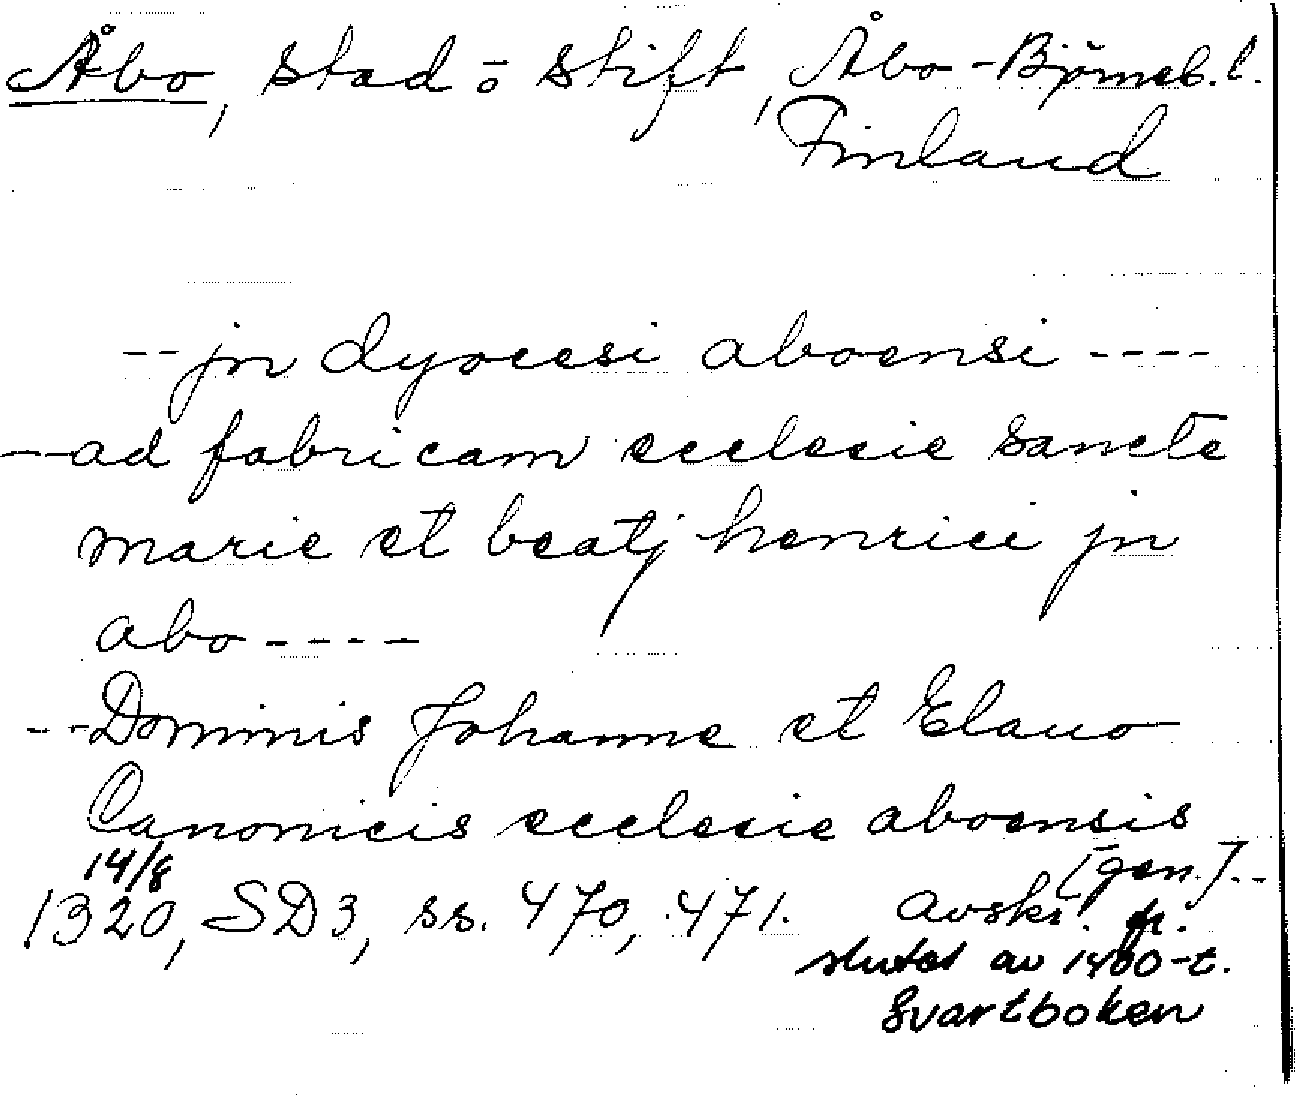 Åbo, stad o stift, Åbo-Björneb. l.
Finland
-- jn dyocesi aboensi ----
-- ad fabricam ecclesie sancte
marie et beatj henrici jn
abo ----
-- Dominis Johanne et Elauo
Canonicis ecclesie aboensis
[gen.] --
14/8
1320, SD3, ss. 470, 471. Avskr. fr.
slutet av 1400-t.
Svartboken